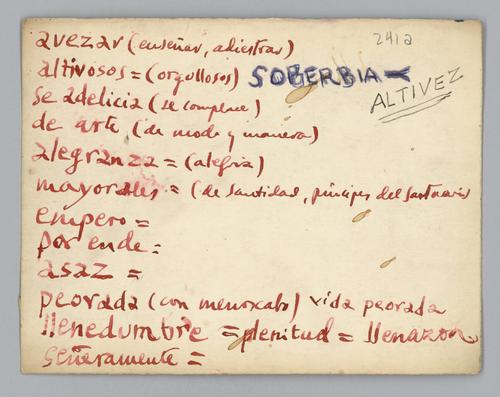 2412
avezar (enseñar, adiestrar)
altivosos = (orgullosos) SOBERBIA
ALTIVEZ
se adelicia (se complace)
de arte (de modo y manera)
alegranza = (alegria)
mayorales = (de santidad, príncipes del santuario
empero =
por ende =
asaz =
peorada (con menoscabo) vida peorada
llenedumbre = plenitud = llenazon
señeramente =